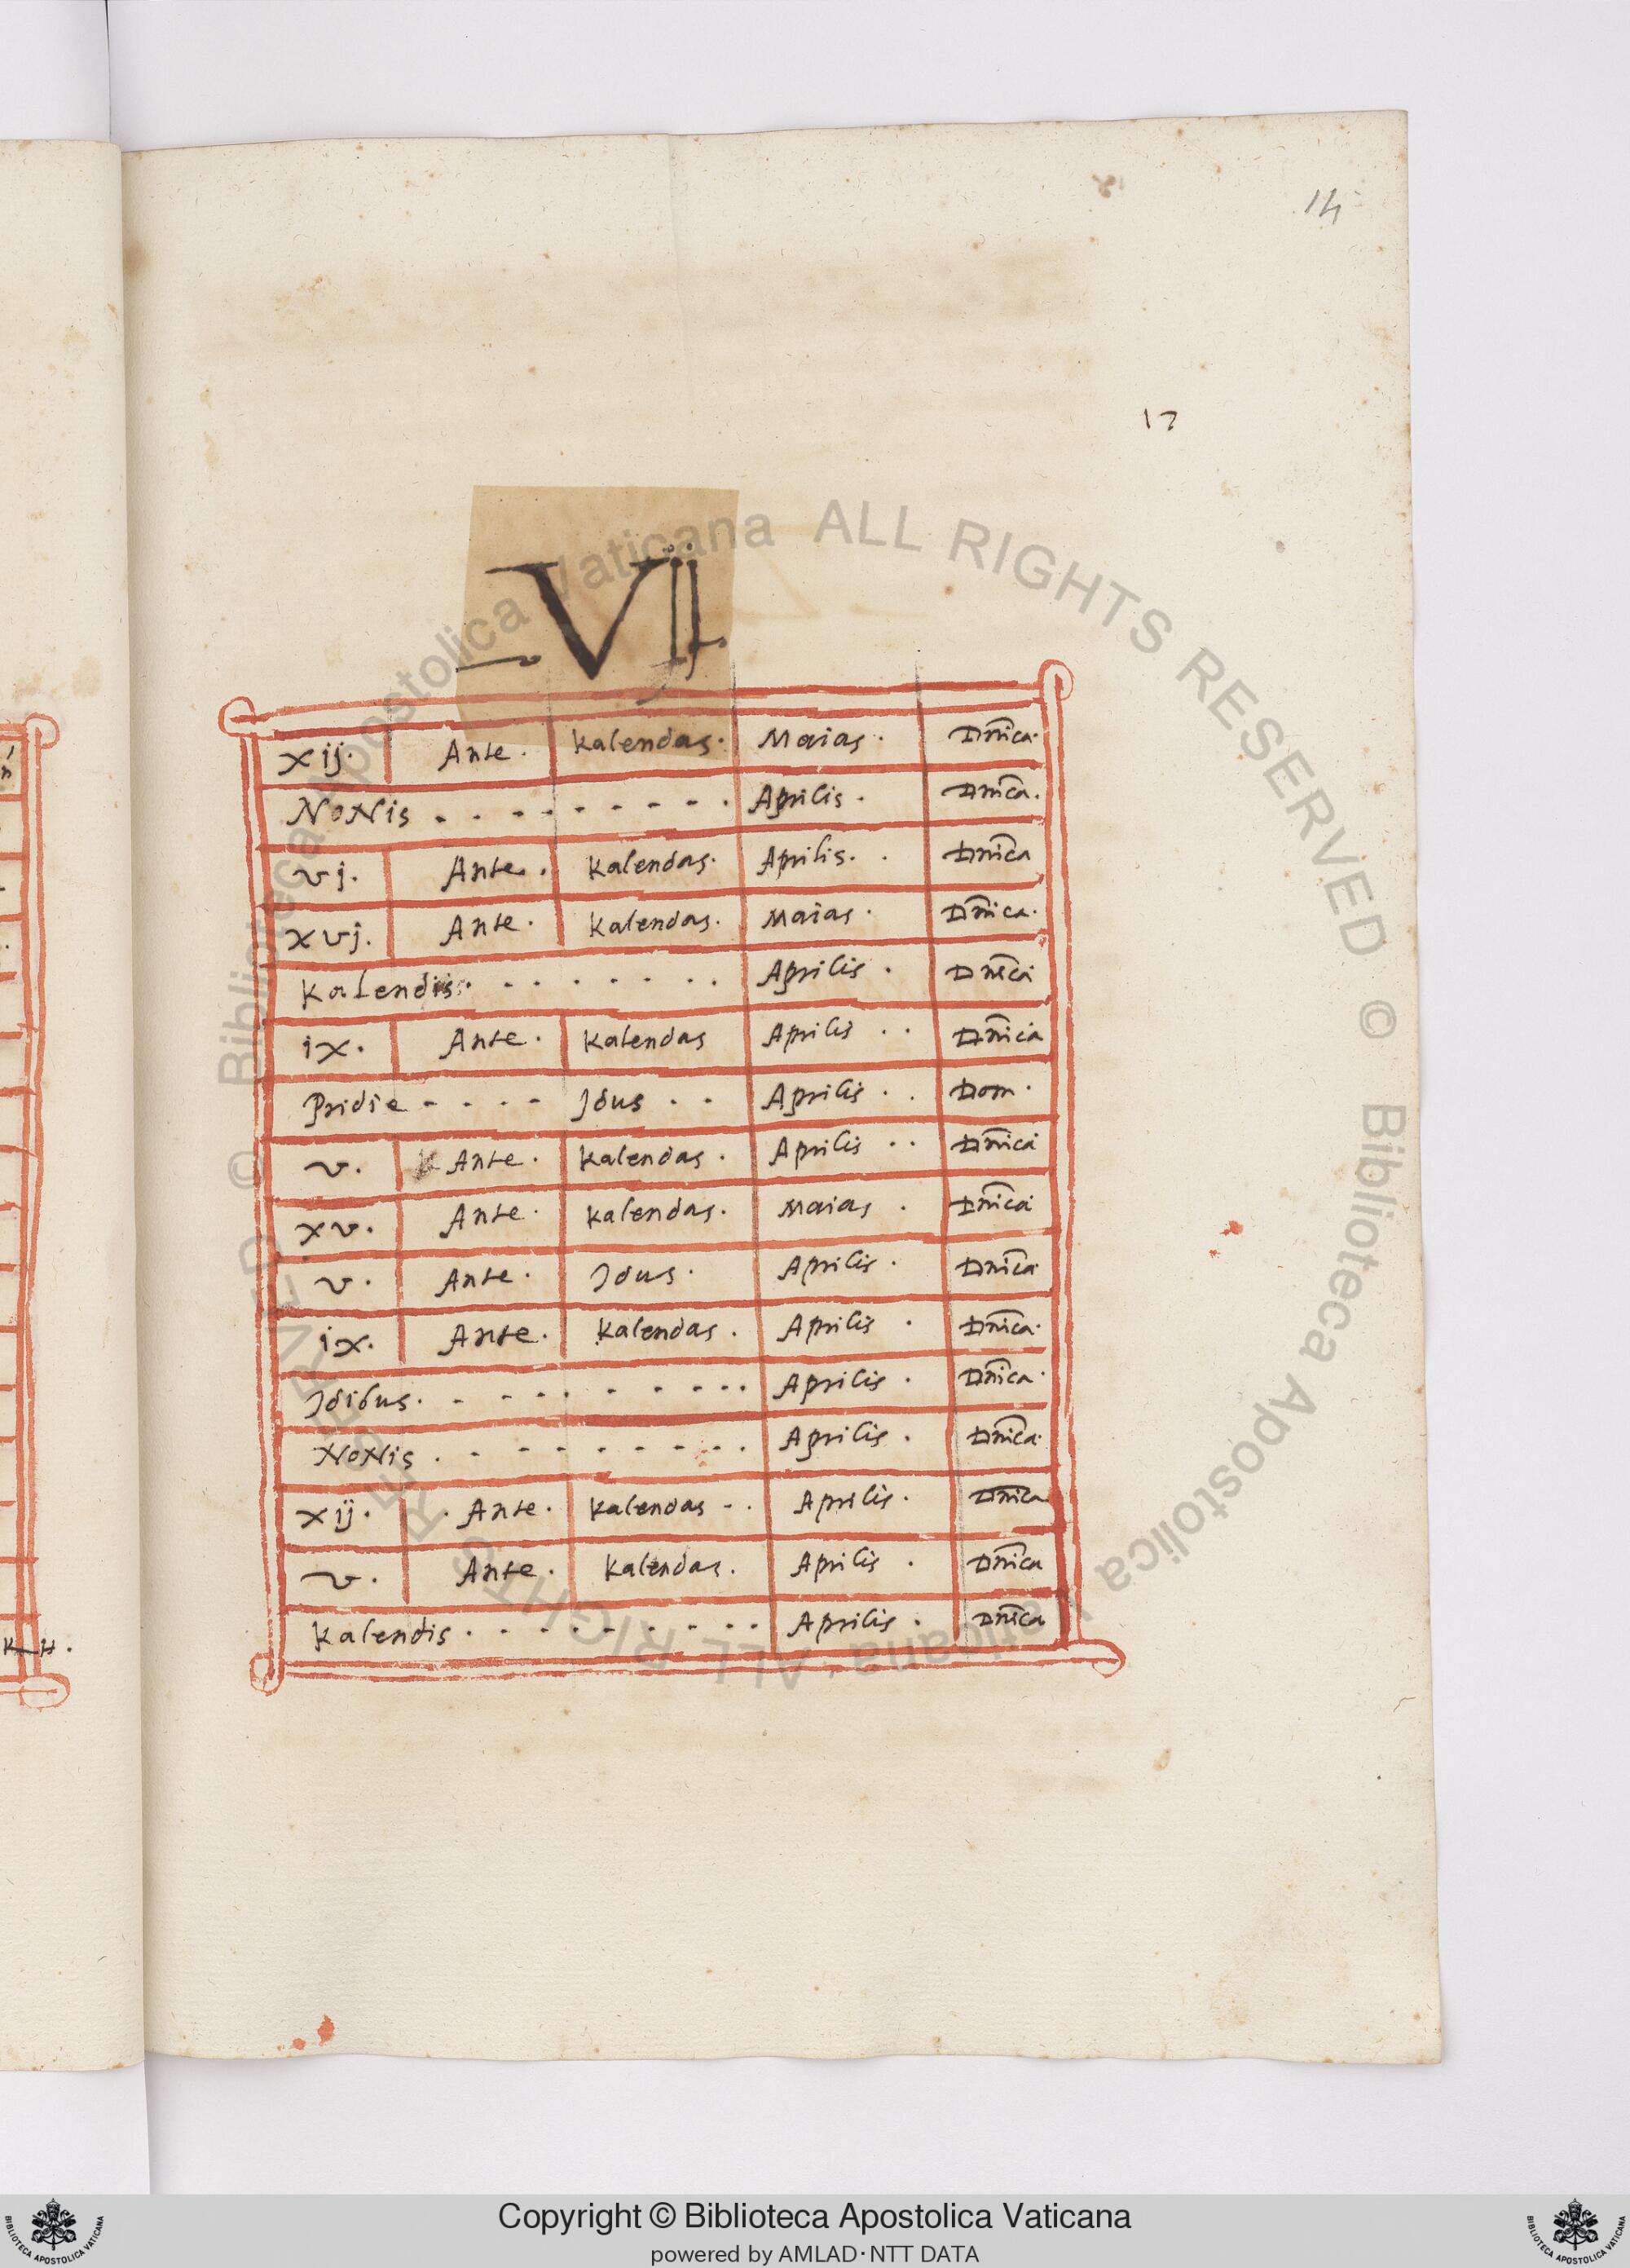 14
17
Vij
xij. Ante. Kalendas. Maias. Dnica.
NoNis . . . . . . . . . Aprilis. Dnica.
vj. Ante. Kalendas. Aprilis. . Dnica
xvj. Ante. Kalendas. Maias. Dnica.
Kalendis. . . . . . . . Aprilis. Dnica
ix. Ante. Kalendas Aprilis . . Dnica
Pridie - - - - Idus . . Aprilis . . Dom.
v. Ante. Kalendas. Aprilis . . Dnica
xv. Ante. Kalendas. Maias . Dnica
v. Ante. Idus. Aprilis. Dnica
ix. Ante. Kalendas. Aprilis . Dnica.
Idibus. . . . . . . . . . Aprilis . Dnica.
NoNis . . . . . . . . . Aprilis . Dnica.
xij. . Ante. Kalendas - . Aprilis. Dnica
v. Ante. Kalendas. Aprilis . Dnica
Kalendis. . . . . . . . . Aprilis . Dnica
© Biblioteca Apostolica Vaticana ALL RIGHTS RESERVED © Biblioteca Apostolica Vaticana ALL RIGHTS RESERVED
Copyright © Biblioteca Apostolica Vaticana
powered by AMLAD·NTT DATA
BIBLIOTECA APOSTOLICA VATICANA
BIBLIOTECA APOSTOLICA VATICANA